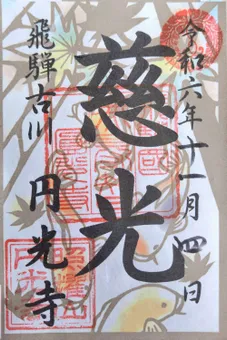 令和六年十一月四日
慈光
飛騨古川
円光寺